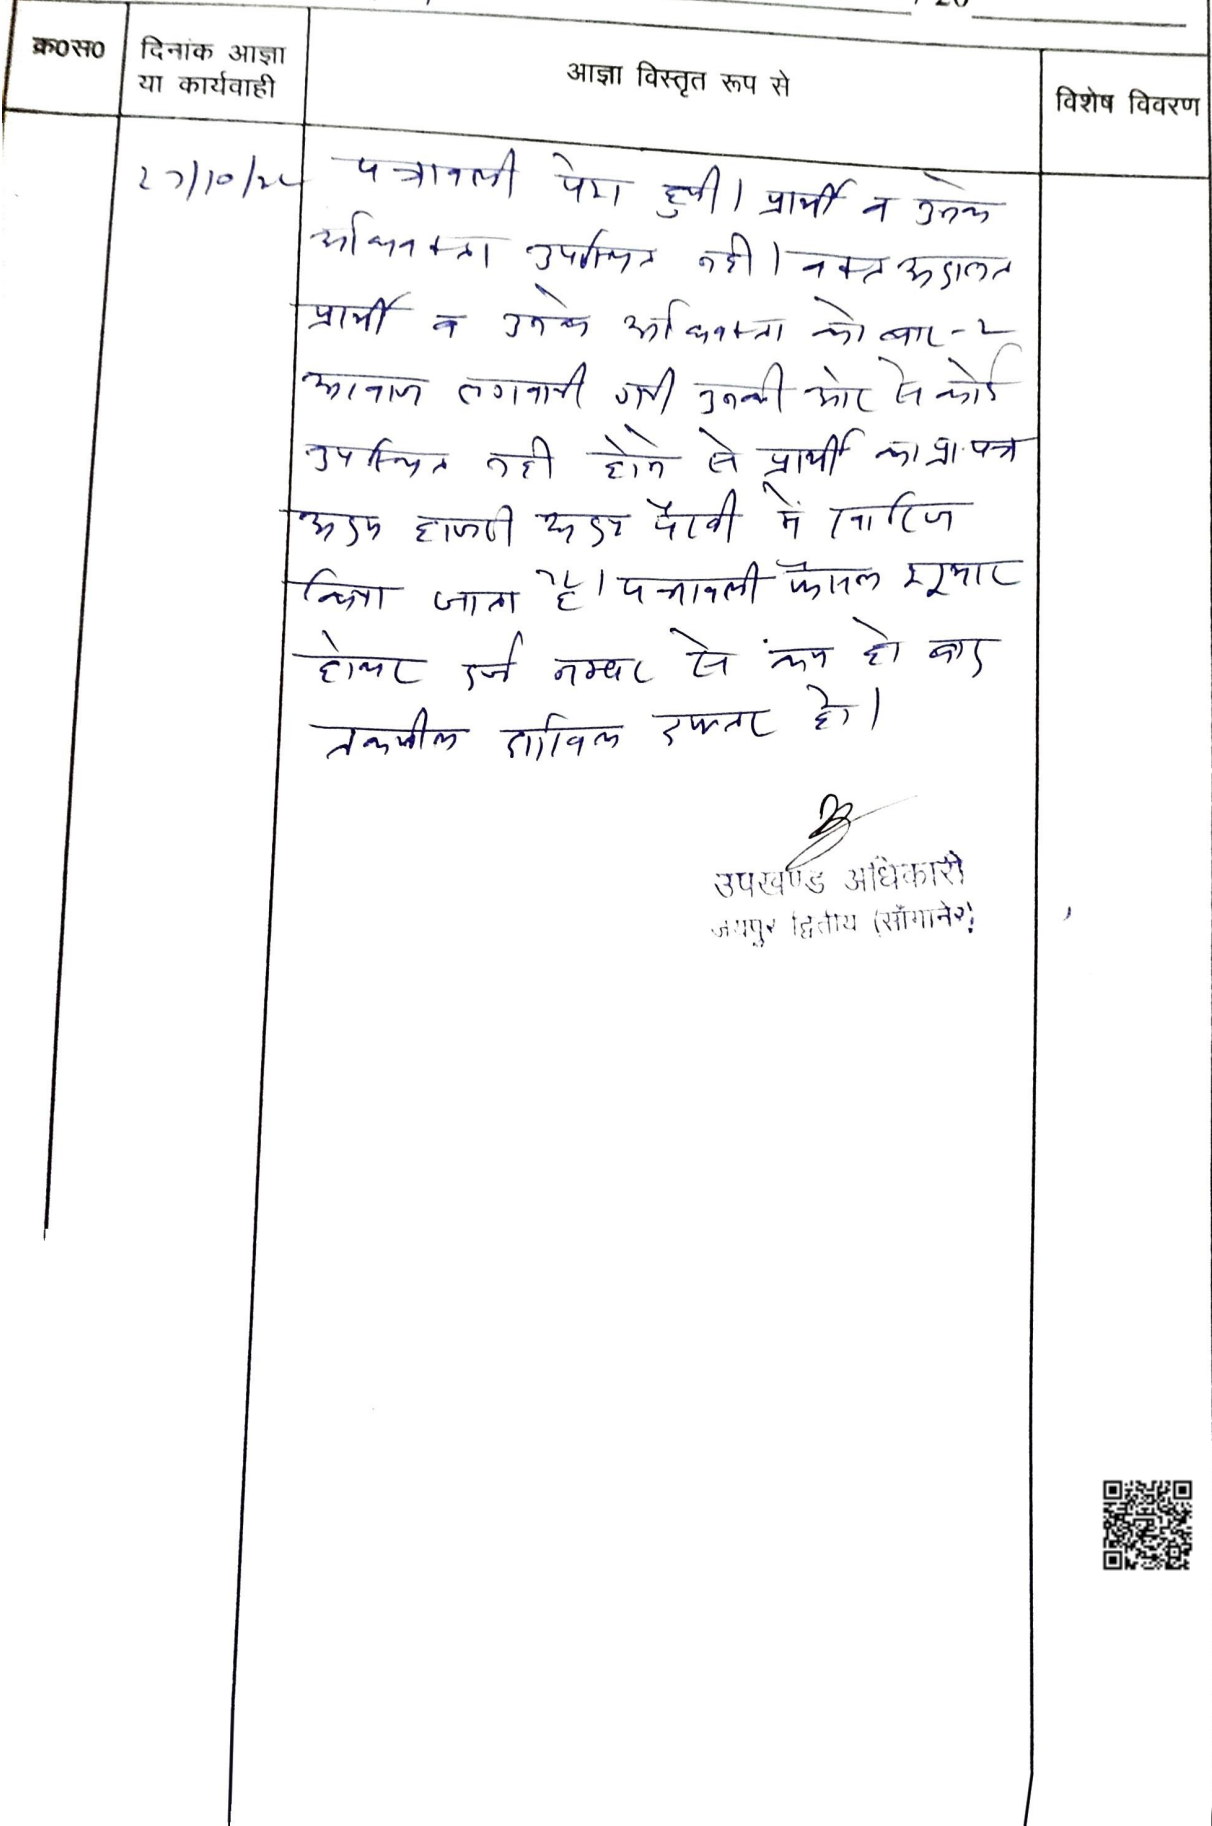 20
क्र०स०
दिनांक आज्ञा
या कार्यवाही
आज्ञा विस्तृत रूप से
विशेष विवरण
पत्रावली पेश हुयी। प्रार्थी व उनके
अधिवक्ता उपस्थित नही। वक्त अदालत
प्रार्थी व उनके अधिवक्ता को बार-२
आवाज लगवायी गयी उनकी ओर से कोई
उपस्थित नही होने से प्रार्थी का प्रा. पत्र
अदम हाजरी अदम पैरवी में खारिज
किया जाता है। पत्रावली फैसल शूमार
होकर दर्ज नम्बर से कम हो बाद
तकमील दाखिल दफ्तर हो।
उपखण्ड अधिकारी
जयपुर द्वितीय (साँगानेर)